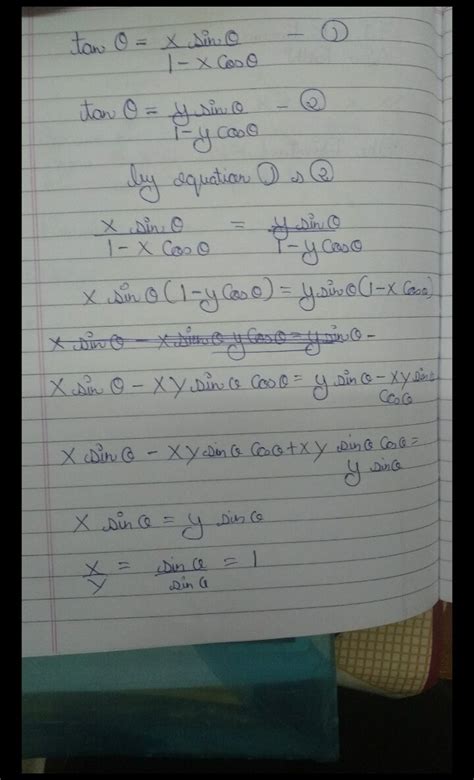 tan θ = x sin θ / 1 - x Cos θ - ①
tan θ = y sin θ / 1 - y Cos θ - ②
by equation ① & ②
x sin θ / 1 - x Cos θ = y sin θ / 1 - y Cos θ
x sin θ (1 - y Cos θ) = y sin θ (1 - x Cos θ)
x sin θ - x sin θ y Cos θ = y sin θ -
x sin θ - xy sin θ Cos θ = y sin θ - xy sin θ
Cos θ
x sin θ - xy sin θ Cos θ + xy sin θ Cos θ =
y sin θ
x sin θ = y sin θ
x / y = sin θ / sin θ = 1